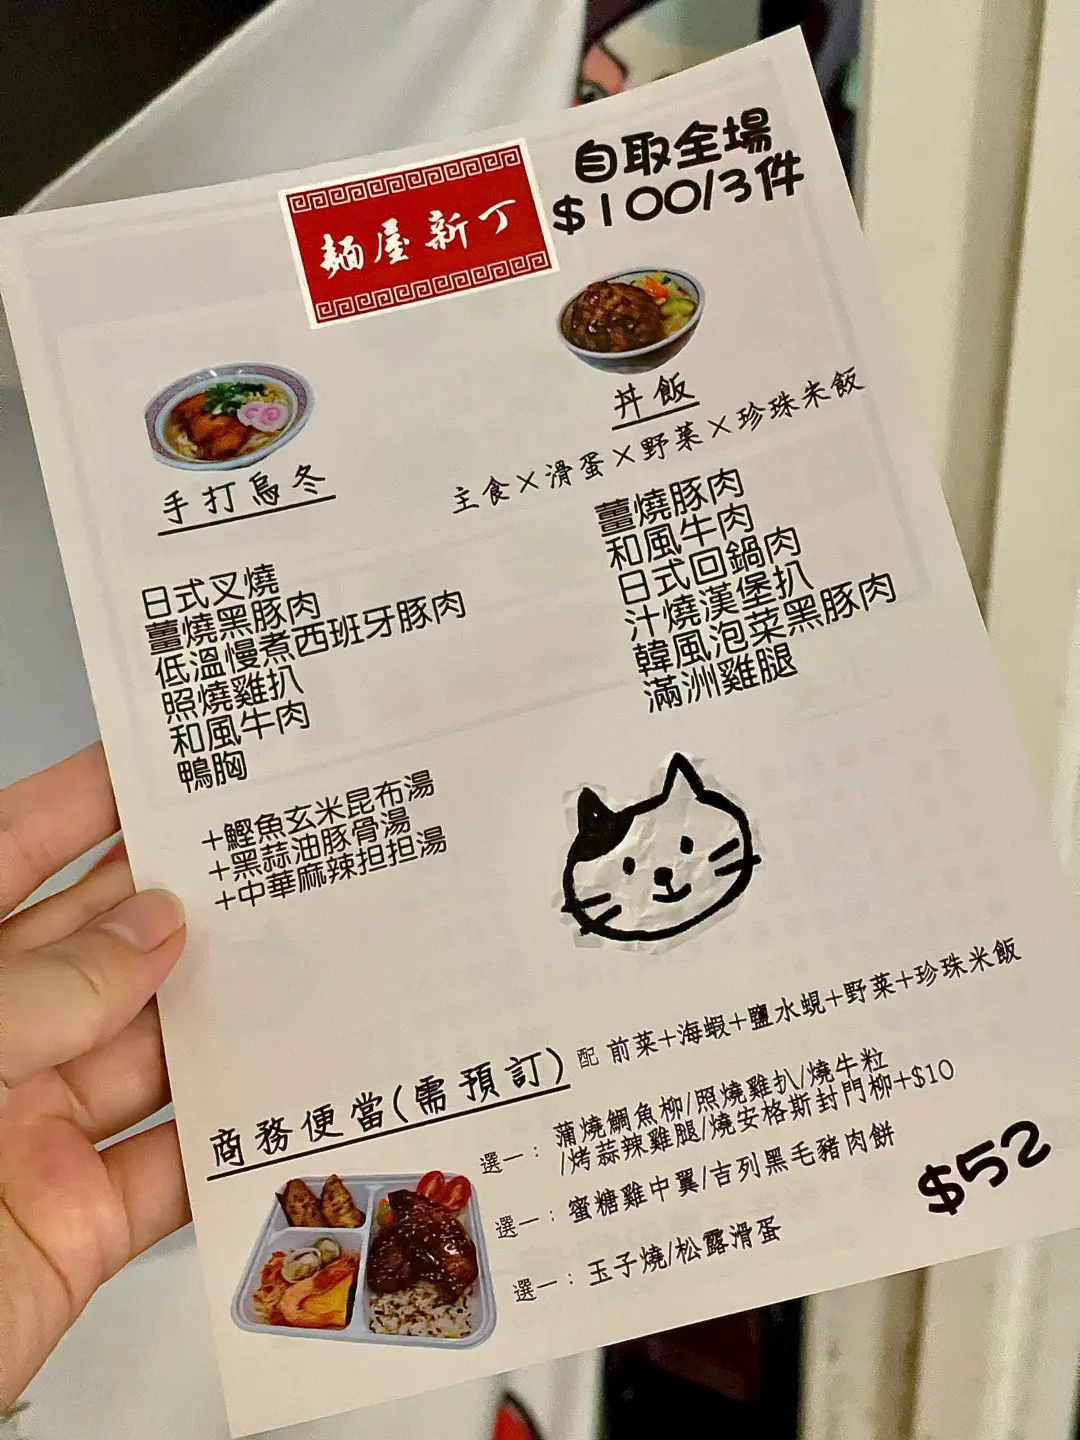 自取全場
$100/3件
麵屋新丁
手打烏冬
日式叉燒
薑燒黑豚肉
低溫慢煮西班牙豚肉
照燒雞扒
和風牛肉
鴨胸
+鰹魚玄米昆布湯
+黑蒜油豚骨湯
+中華麻辣担担湯
丼飯
主食×滑蛋×野菜×珍珠米飯
薑燒豚肉
和風牛肉
日式回鍋肉
汁燒漢堡扒
韓風泡菜黑豚肉
滿洲雞腿
商務便當(需預訂)
配 前菜+海蝦+鹽水蜆+野菜+珍珠米飯
選一：蒲燒鯛魚柳/照燒雞扒/燒牛粒
/烤蒜辣雞腿/燒安格斯封門柳+$10
選一：蜜糖雞中翼/吉列黑毛豬肉餅
選一：玉子燒/松露滑蛋
$52